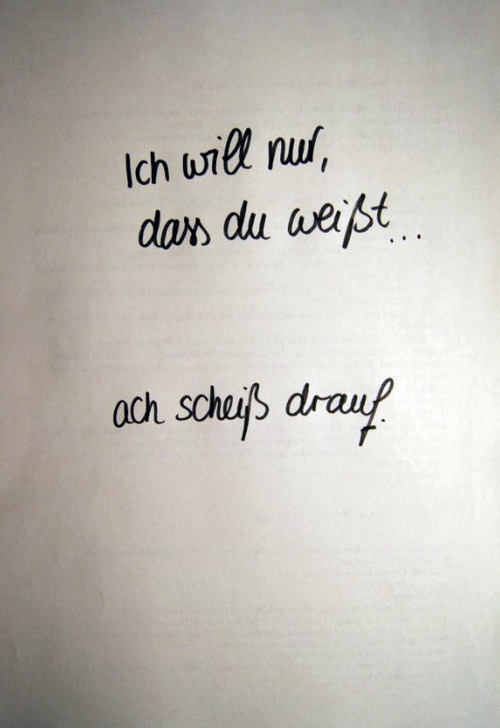 Ich will nur,
dass du weißt...
ach scheiß drauf.